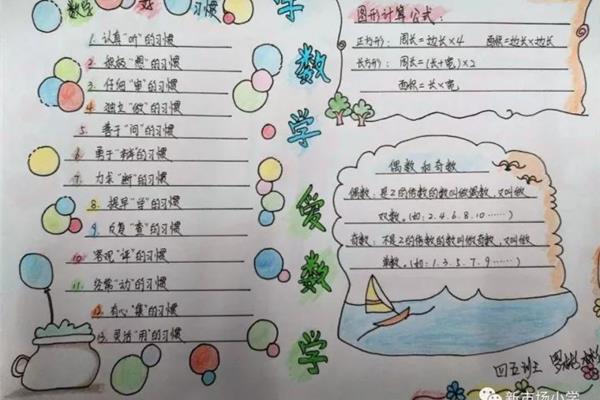 数学 习惯
1. 认真“听”的习惯
2. 的习惯
3. 仔细“审”的习惯
4. 独立“做”的习惯
5. 善于“问”的习惯
6. 勇于 的习惯
7. 力求“断”的习惯
8. 提早“学”的习惯
9. 反复“查”的习惯
10. 客观“评”的习惯
11. 经常“动”的习惯
12. 有心“集”的习惯
13. 灵活“用”的习惯
学
数
学
爱
数
学
图形计算公式:
正方形: 周长=边长×4 面积=边长×边长
长方形: 周长=(长+宽)×2
面积=长×宽
偶数和奇数
偶数:是2的倍数的数叫做偶数,又叫做
双数。(如:2.4.6.8.10……)
奇数:不是2的倍数的数叫做奇数,又叫做
单数。(如:1.3.5.7.9……)
四五班 罗
新市场小学